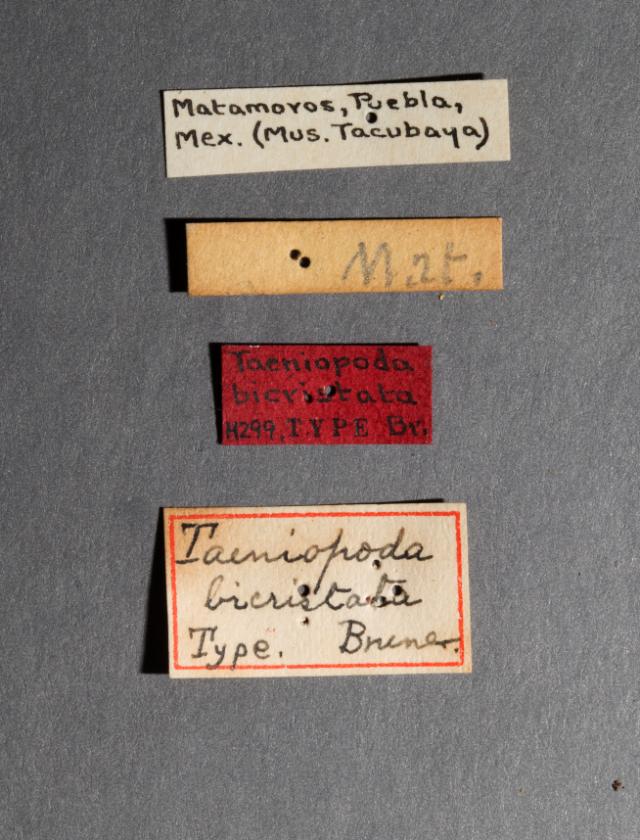 Matamoros, Puebla,
Mex. (Mus. Tacubaya)
Mat.
Taeniopoda
bicristata
H299, TYPE Br.
Taeniopoda
bicristata
Type. Bruner.